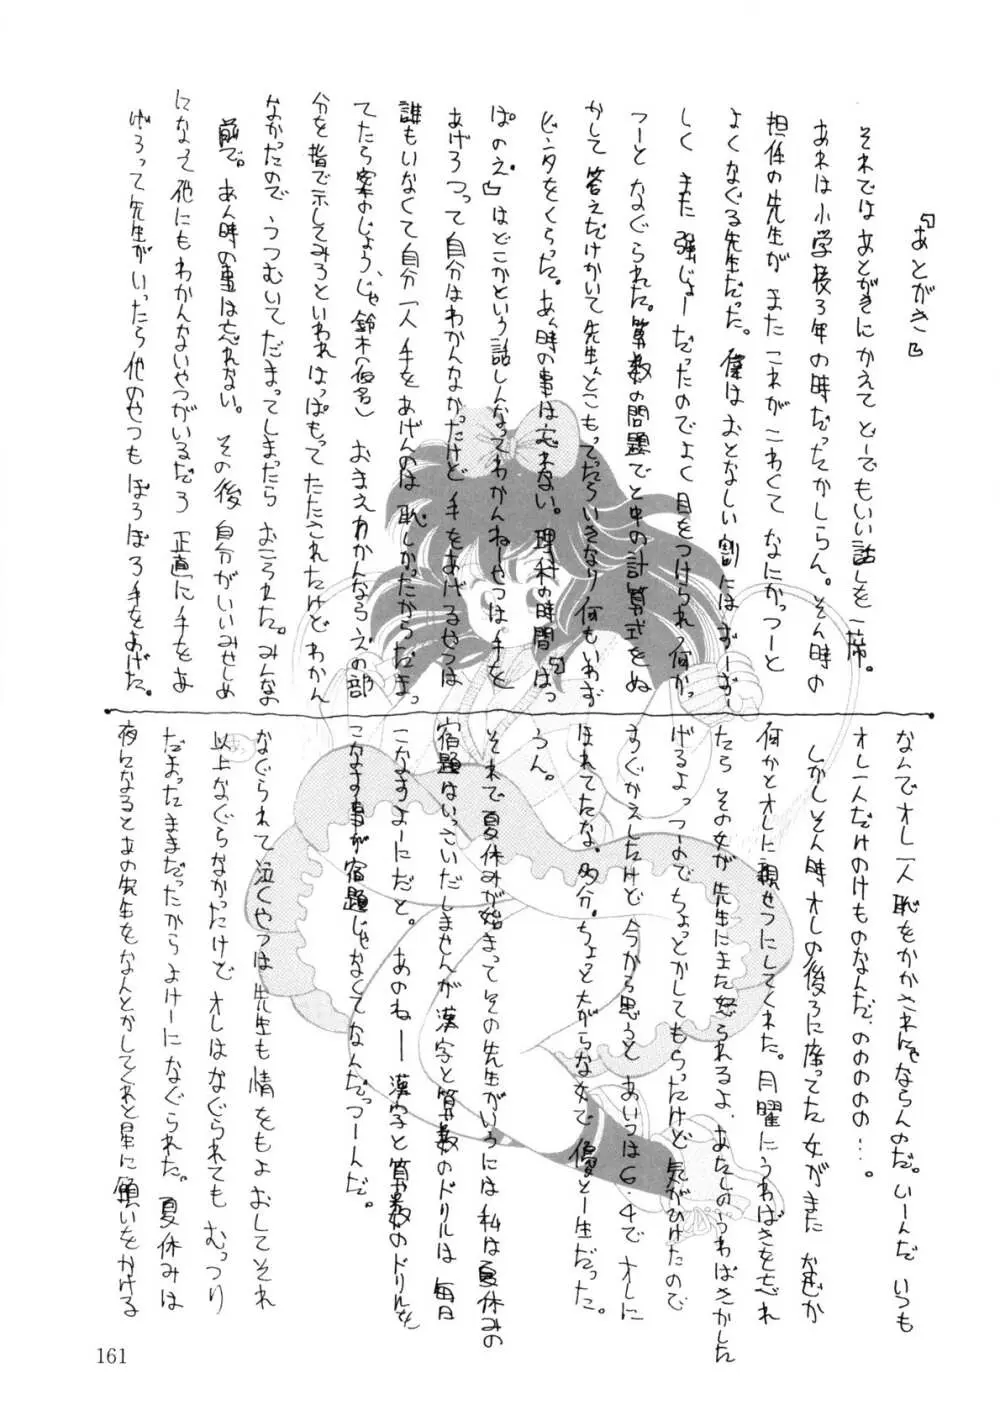 『あとがき』
それではあとがきにかえてどーでもいい話しを一席。
あれは小学校3年の時だったかしらん。そん時の
担任の先生がまたこれがこわくてなにかっつーと
よくなぐる先生だった。僕はおとなしい割にはずーずー
しくまた強じょーだったのでよく目をつけられ、何かっ
つーとなぐられた。算数の問題でと中の計算式をぬ
かして答えだけかいて先生んとこもってったらいきなり何もいわず
ビンタをくらった。あん時の事は忘れない。理科の時間「はっ
ぱのえ」はどこかという話しんなってわかんねーやつは手を
あげろつって自分はわかんなかったけど手をあげるやつは
誰もいなくて自分一人手をあげんのは恥しかったからだまっ
てたら案のじょう、じゃ鈴木(仮名)おまえわかんならえの部
分を指で示してみろといわれはっぱもってたたされたけどわかん
なかったのでうつむいてだまってしまったらおこられた。みんな
前で。あん時の事は忘れない。その後自分がいいみせしめ
になって他にもわかんないやつがいるだろ正直に手をあ
げろって先生がいったら他のやつもぽろぽろ手をあげた。
なんでオレ一人恥をかかされにゃならんのだ。いーんだいつも
オレ一人だけのけものなんだ、のののの…。
しかしそん時オレの後ろに座ってた女がまたなぜか
何かとオレに親せつにしてくれた。月曜にうわばきを忘れ
たらその女が先生にまた怒られるよ、あたしのうわばきかした
げるよっつーのでちょっとかしてもらったけど気がひけたので
すぐかえしたけど今から思うとあいつは6.4でオレに
ほれてたな。多分。ちょっと大がらな女で優とー生だった。
うん。
それで夏休みが始まってその先生がいうには私は夏休みの
宿題はいっさいだしませんが漢字と算数のドリルは毎日
こなすよーにだと。あのねー漢字と算数のドリルを
こなす事が宿題じゃなくてなんだっつーんだ。
なぐられて泣くやつは先生も情をもよおしてそれ
以上なぐらなかったけどオレはなぐられてもむっつり
だまったままだったからよけーになぐられた。夏休みは
夜になるとあの先生をなんとかしてくれと星に願いをかける
161